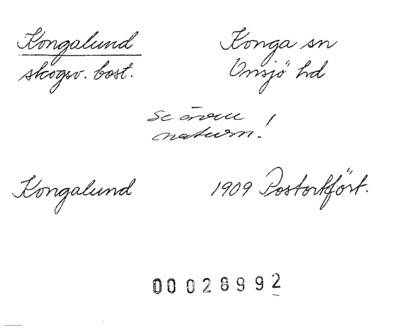 Kongalund Konga sn
skogsv. bost. Onsjö hd
Se även
naturn!
Kongalund 1909 Postortfört.
00028992